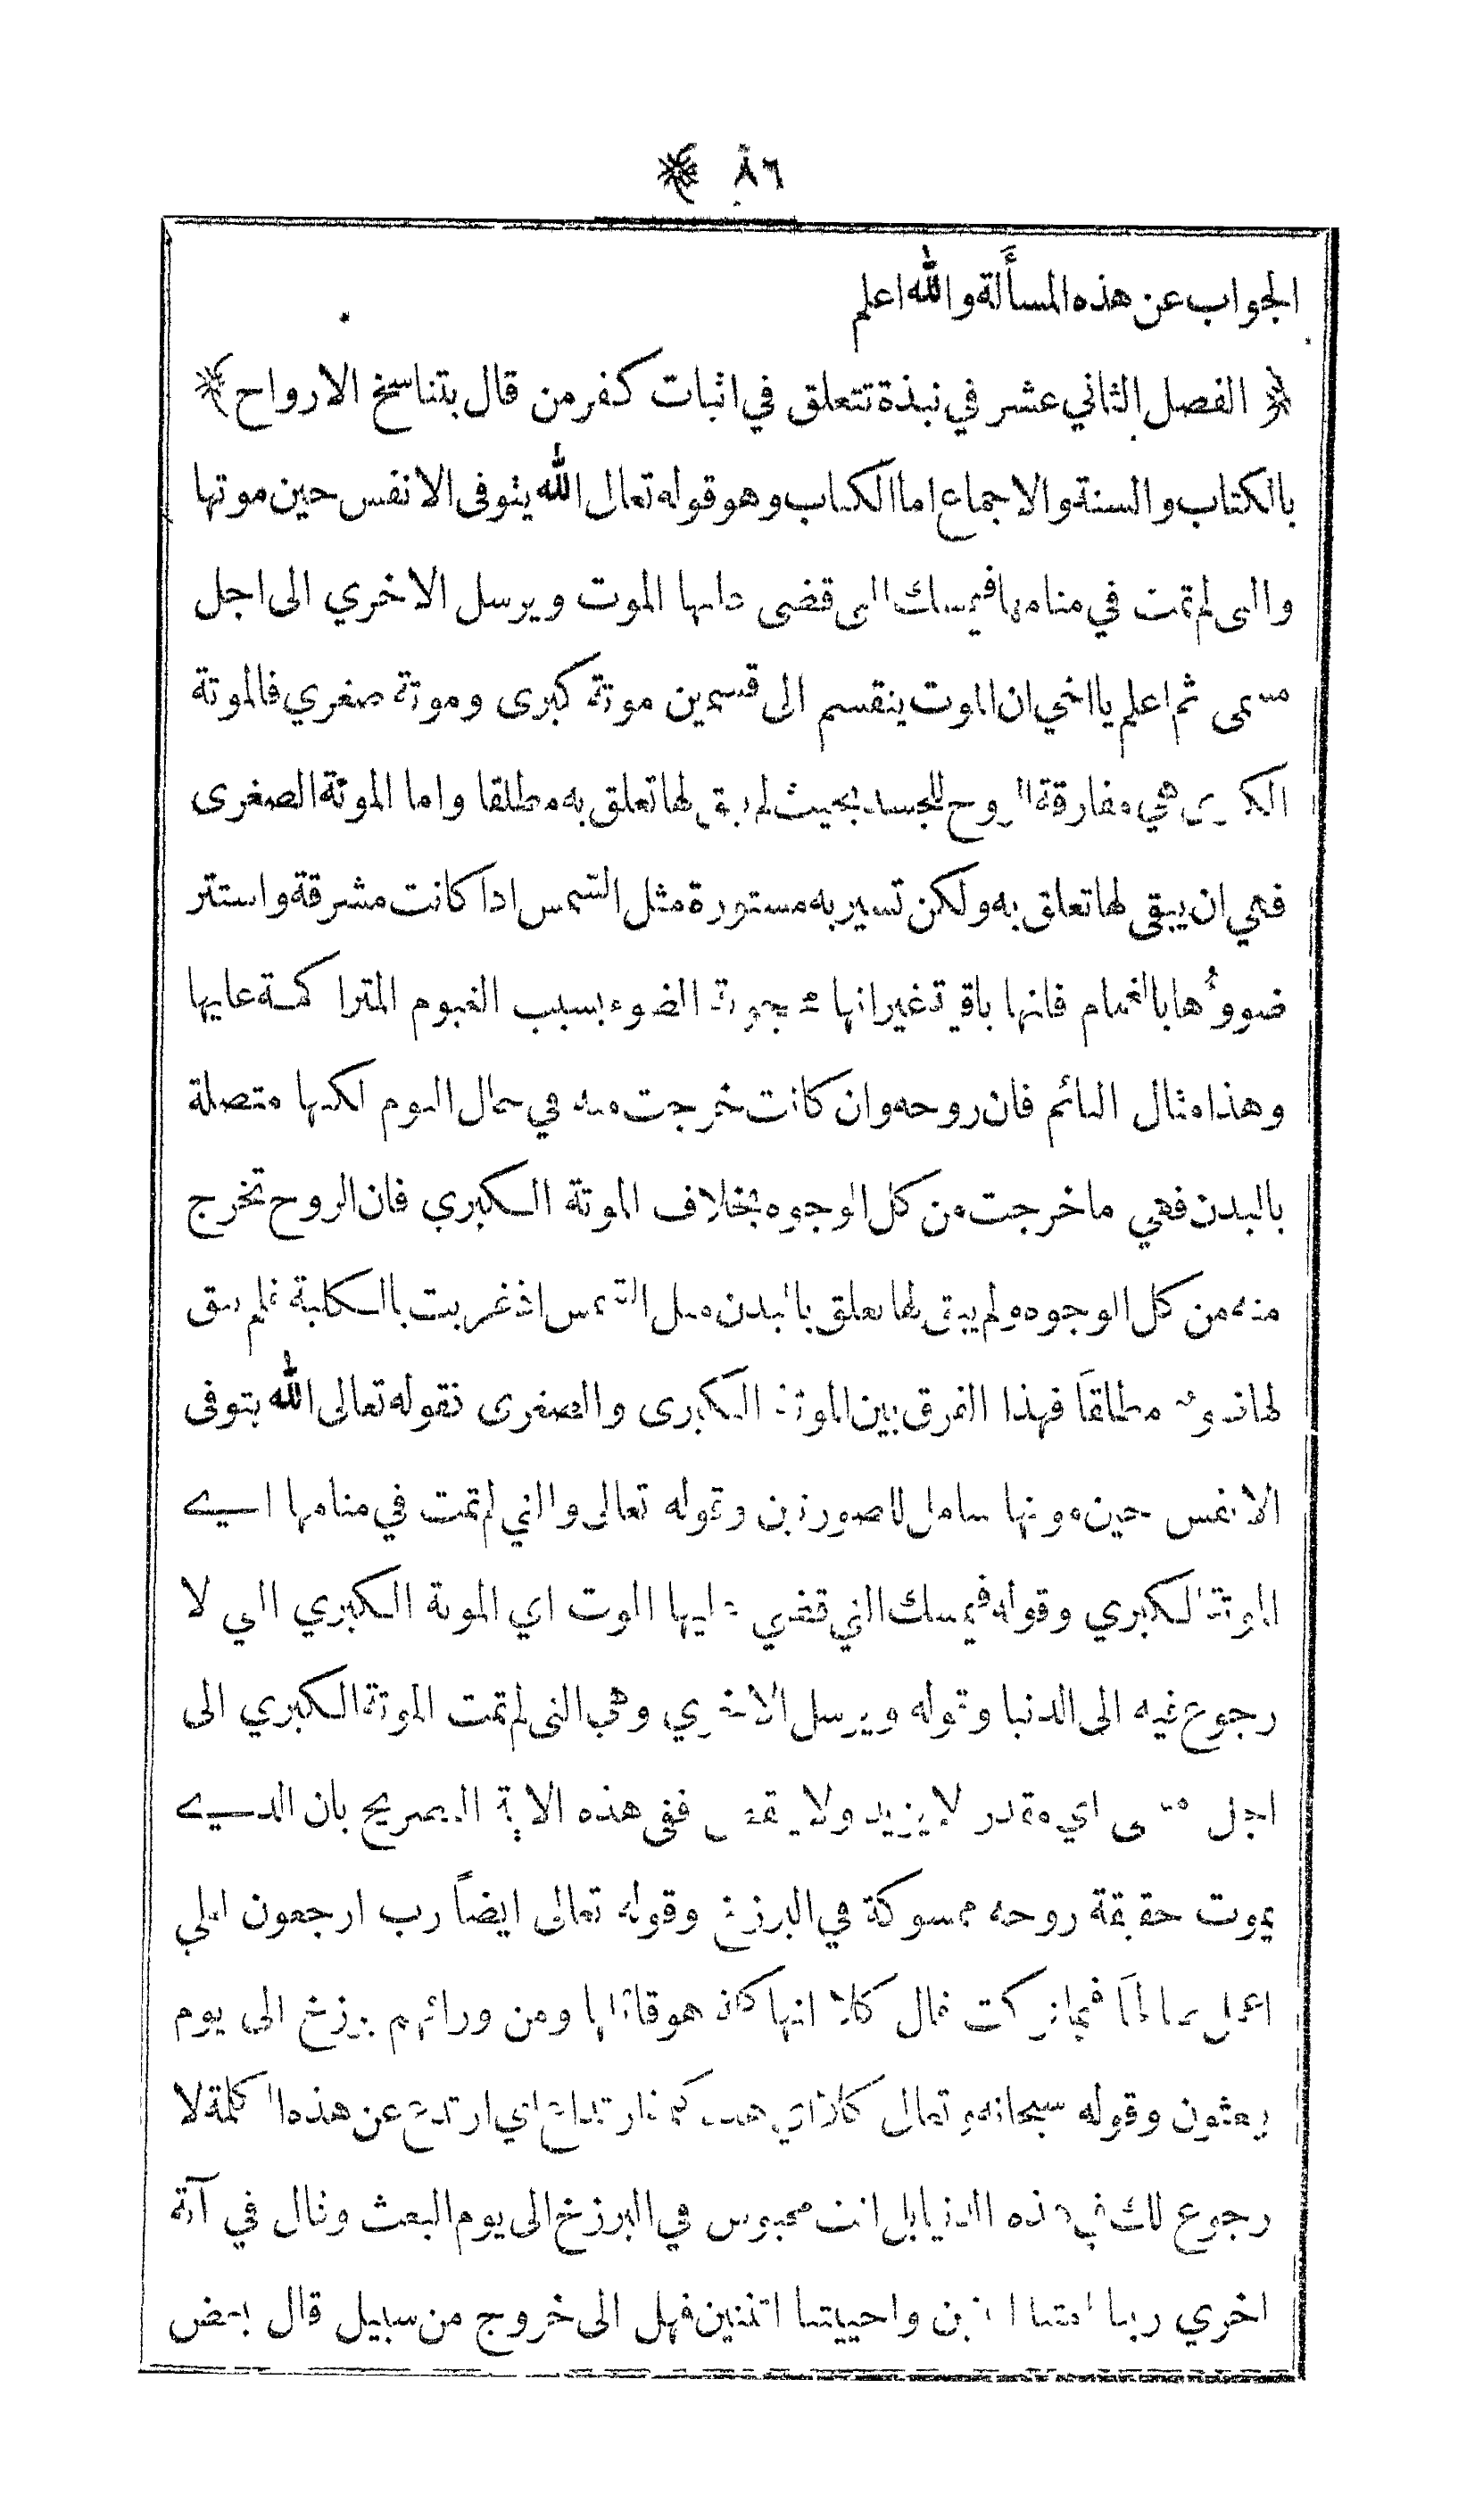 ٨٦
الجواب عن هذه المسألة والله اعلم
الفصل الثاني عشر في نبذة تتعلق في اثبات كفر من قال بتناسخ الارواح
بالكتاب والسنة والاجماع اما الكتاب وهو قوله تعالى الله يتوفى الانفس حين موتها
والتى لم تمت في منامها فيمسك التى قضى عليها الموت ويرسل الاخري الى اجل
مسمى ثم اعلم يا اخي ان الموت ينقسم الى قسمين موتة كبرى وموتة صغري فالموتة
الكبرى هي مفارقة الروح للجسد بحيث لم يبق لها تعلق به مطلقا واما الموتة الصغرى
فهي ان يبقى لها تعلق به ولكن تسير به مستورة مثل الشمس اذا كانت مشرقة واستتر
ضووُها بالغمام فانها باقية غير انها محجوبة الضوء بسبب الغيوم المتراكمة عليها
وهذا مثال النائم فان روحه وان كانت خرجت منه في حال النوم لكنها متصلة
بالبدن فهي ما خرجت من كل الوجوه بخلاف الموتة الكبري فان الروح تخرج
منه من كل الوجوه ولم يبق لها تعلق بالبدن مثل الشمس اذ غربت بالكلية فلم يبق
لها ضوء مطلقاً فهذا الفرق بين الموتة الكبرى والصغرى فقوله تعالى الله يتوفى
الانفس حين موتها شامل للصورتين وقوله تعالى والتي لم تمت في منامها اي
الموتة الكبري وقوله فيمسك التي قضي عليها الموت اي الموتة الكبري التي لا
رجوع فيه الى الدنيا وقوله ويرسل الاخري وهي التى لم تمت الموتة الكبري الى
اجل مسمى اي مقدر لا يزيد ولا ينقص ففى هذه الاية التصريح بان الذي
يموت حقيقة روحه ممسوكة في البرزخ وقوله تعالى ايضاً رب ارجعون لعلي
اعمل صالحاً فيما تركت قال كلا انها كلمة هو قائلها ومن ورائهم برزخ الى يوم
يبعثون وقوله سبحانه وتعالى كلا اي ارتدع عن هذه الكلمة لا
رجوع لك في هذه الدنيا بل انت محبوس في البرزخ الى يوم البعث وقال في آية
اخري ربنا امتنا اثنتين واحييتنا اثنتين فهل الى خروج من سبيل قال بعض